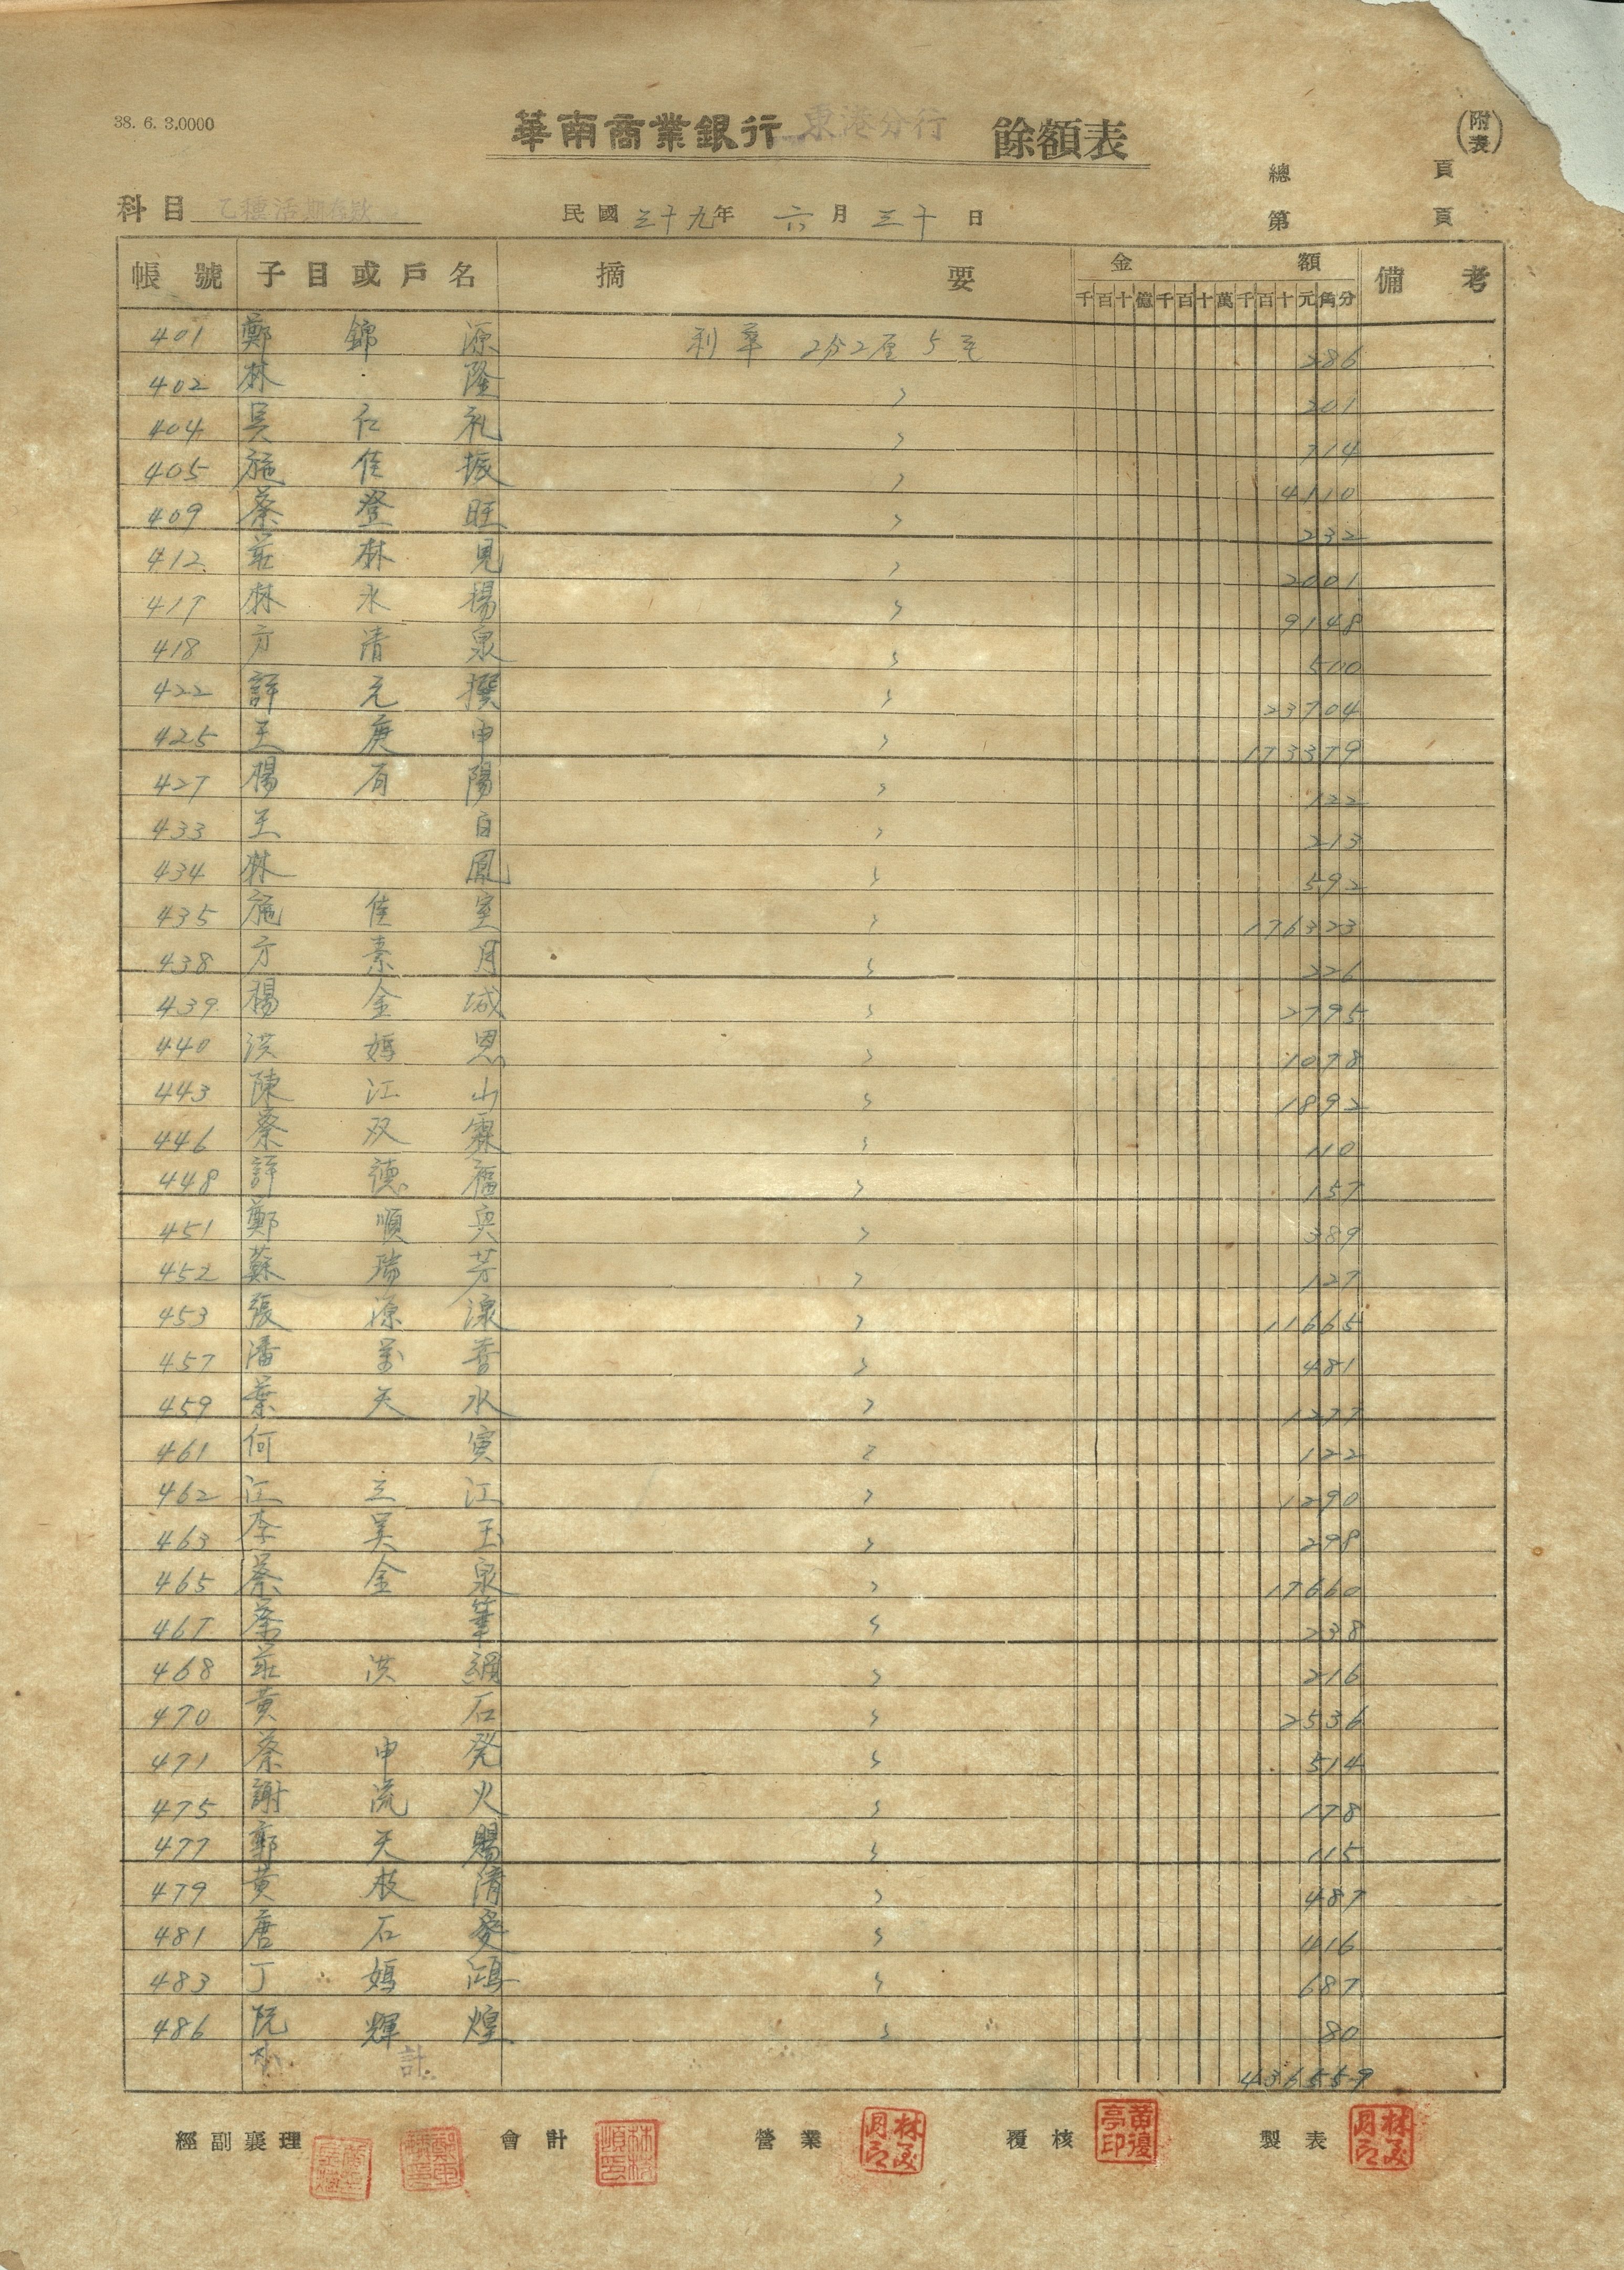 38. 6. 3,0000
華南商業銀行 東港分行 餘額表
(附表)
總 頁
科目 乙種活期存款 民國三十九年 六月三十日 第 頁
帳號 子目或戶名 摘要 金額 備考
千百十億千百十萬千百十元角分
401 鄭錦源 利率 2分2厘5毛 286
402 林隆 〃 201
404 吳仁礼 〃 714
405 施佳振 〃 4110
409 蔡登旺 〃 232
412 莊林見 〃 2001
417 林水楊 〃 9148
418 方清泉 〃 510
422 許元撰 〃 23704
425 王庚申 〃 173379
427 楊有陽 〃 122
433 王白 〃 213
434 林鳳 〃 592
435 施佳室 〃 176323
438 方素月 〃 226
439 楊金城 〃 2795
440 洪媽恩 〃 1078
443 陳江山 〃 1892
446 蔡双霖 〃 110
448 許德福 〃 157
451 鄭順興 〃 389
452 蘇瑞芳 〃 127
453 張源濠 〃 11665
457 潘萬香 〃 481
459 葉天水 〃 1277
461 何寅 〃 122
462 江三江 〃 1290
463 李吳玉 〃 298
465 蔡金泉 〃 17660
467 蔡筆 〃 238
468 莊洪絹 〃 216
470 黃石 〃 2536
471 蔡申発 〃 514
475 謝流火 〃 178
477 鄭天賜 〃 115
479 黃枝清 〃 487
481 唐石癸 〃 416
483 丁媽鴻 〃 687
486 阮輝煌 〃 80
小計 436559
經副襄理 會計 營業 覆核 製表